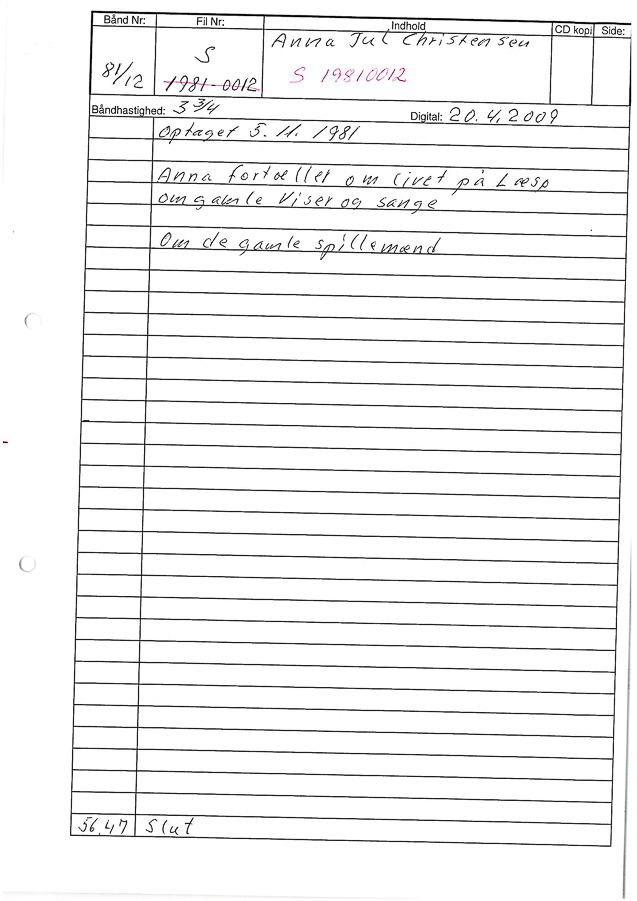 Bånd Nr: Fil Nr: Indhold CD kopi Side:
81/12 S Anna Jul Christensen
1981-0012 S 19810012
Båndhastighed: 3 3/4 Digital: 20.4.2009
Optaget 5.11.1981
Anna fortæller om livet på Læsø
om gamle Viser og sange
Om de gamle spillemænd
56,47 Slut